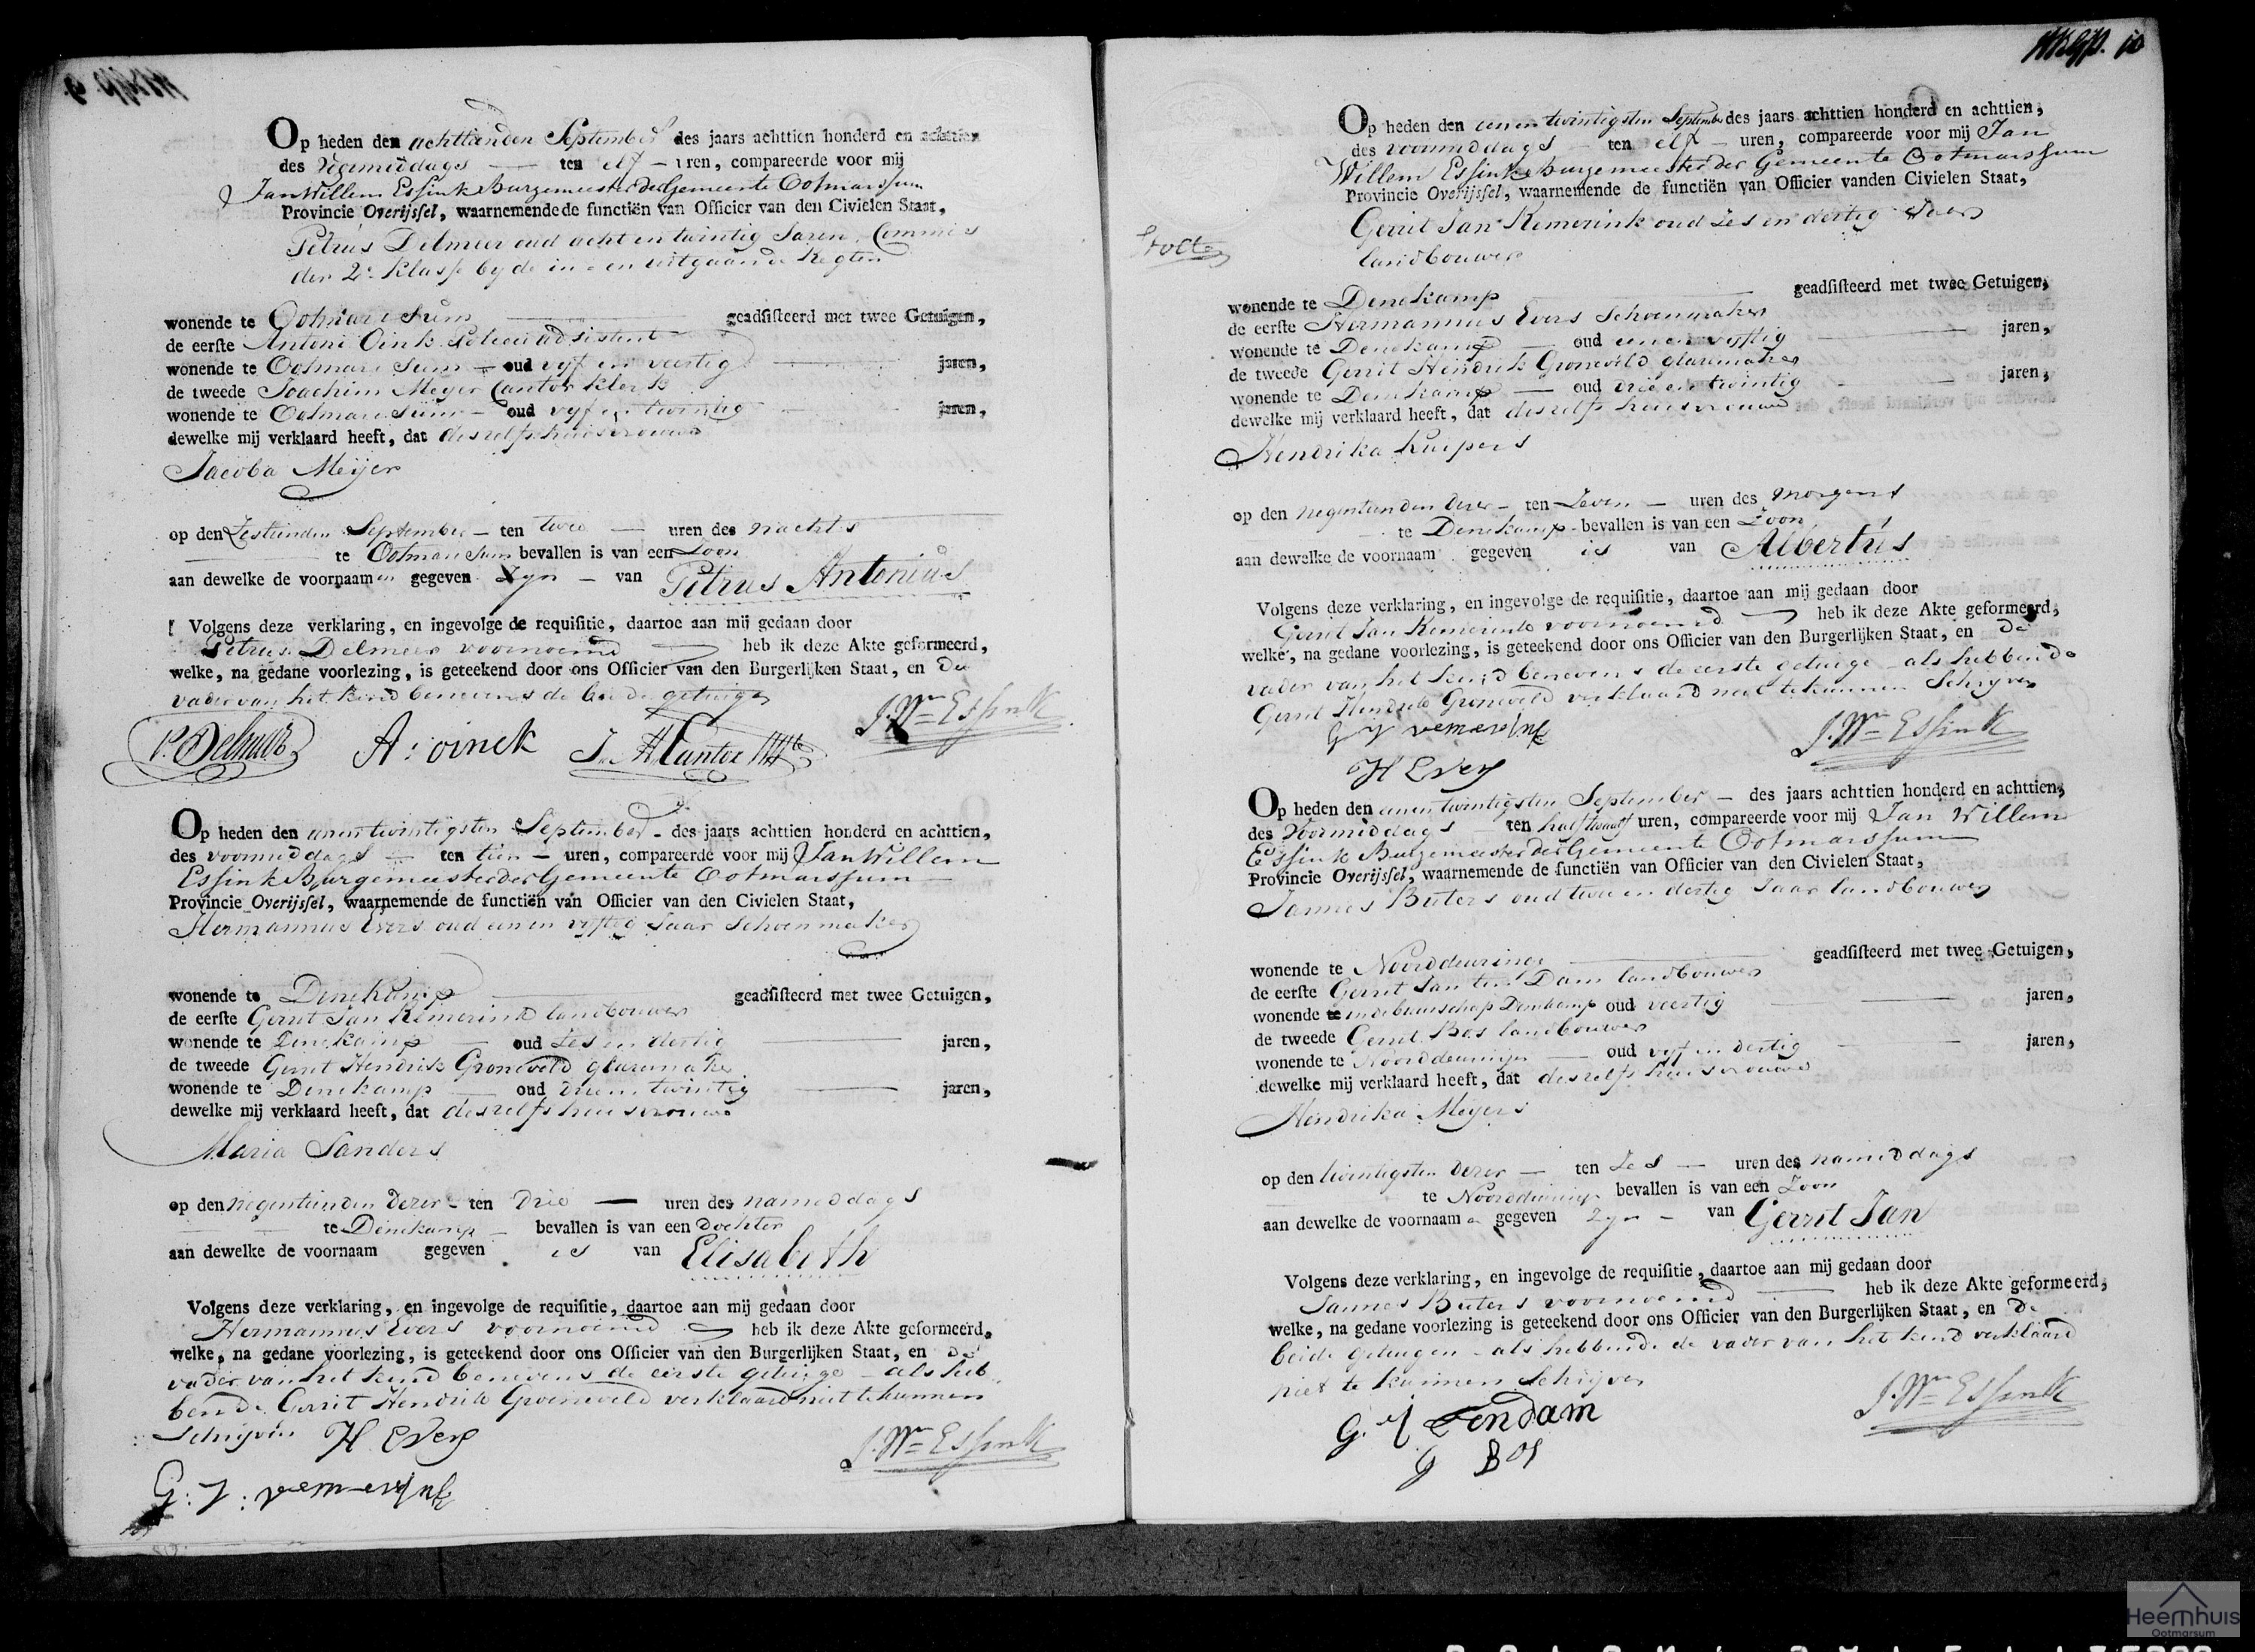 Op heden den achttienden September des jaars achttien honderd en achttien
des Voormiddags ten elf uren, compareerde voor mij
Jan Willem Essink Burgemeester der Gemeente Ootmarssum
Provincie Overijssel, waarnemende de functiën van Officier van den Civielen Staat,
Petrus Delmeer oud acht en twintig Jaren, Commies
der 2e Klasse by de in- en uitgaande Regten
wonende te Ootmarssum geadsisteerd met twee Getuigen,
de eerste Antoni Oink Policie adsistent
wonende te Ootmarssum oud vyf en veertig jaren,
de tweede Joachim Meyer Cantor klerk
wonende te Ootmarssum oud vyf en twintig jaren,
dewelke mij verklaard heeft, dat deszelfs huisvrouwe
Jacoba Meijer
op den Zestienden September ten twee uren des nachts
te Ootmarssum bevallen is van een Zoon
aan dewelke de voornaamen gegeven Zyn van Petrus Antonius
Volgens deze verklaring, en ingevolge de requisitie, daartoe aan mij gedaan door
Petrus Delmeer voornoemd heb ik deze Akte geformeerd,
welke, na gedane voorlezing, is geteekend door ons Officier van den Burgerlijken Staat, en de
vader van het Kind benevens de beide getuigen
J. Wm Essink
P. Delmeer A: oinck J. M Cantor
Op heden den eenentwintigsten September des jaars achttien honderd en achttien,
des voormiddags ten tien uren, compareerde voor mij Jan Willem
Essink Burgemeester der Gemeente Ootmarssum
Provincie Overijssel, waarnemende de functiën van Officier van den Civielen Staat,
Hermannus Evers oud een en vyftig Jaar Schoenmaker
wonende te Denekamp geadsisteerd met twee Getuigen,
de eerste Gerrit Jan Remerink landbouwer
wonende te Denekamp oud Zes en dertig jaren,
de tweede Gerrit Hendrik Groneveld glazemaker
wonende te Denekamp oud drie en twintig jaren,
dewelke mij verklaard heeft, dat deszelfs huisvrouwe
Maria Sanders
op den negentienden dezer ten drie uren des nameddags
te Denekamp bevallen is van een dochter
aan dewelke de voornaam gegeven is van Elisabeth
Volgens deze verklaring, en ingevolge de requisitie, daartoe aan mij gedaan door
Hermannus Evers voornoemd heb ik deze Akte geformeerd,
welke, na gedane voorlezing, is geteekend door ons Officier van den Burgerlijken Staat, en de
vader van het kind benevens de eerste getuige als heb
bende Gerrit Hendrik Groeneveld verklaard niet te kunnen
Schryven H Evers
J. Wm Essink
G: J: remerink
Op heden den eenentwintigsten September des jaars achttien honderd en achttien,
des voormiddags ten elf uren, compareerde voor mij Jan
Willem Essink Burgemeester der Gemeente Ootmarssum
Provincie Overijssel, waarnemende de functiën van Officier vanden Civielen Staat,
Gerrit Jan Remerink oud Zes en dertig Jaar
landbouwer
wonende te Denekamp geadsisteerd met twee Getuigen,
de eerste Hermannus Evers Schoenmaker
wonende te Denekamp oud een en vyftig jaren,
de tweede Gerrit Hendrik Groneveld glazemaker
wonende te Denekamp oud drie en twintig jaren,
dewelke mij verklaard heeft, dat deszelfs huisvrouwe
Hendrika Kuipers
op den negentienden dezer ten Zeven uren des morgens
te Denekamp bevallen is van een Zoon
aan dewelke de voornaam gegeven is van Albertus
Volgens deze verklaring, en ingevolge de requisitie, daartoe aan mij gedaan door
Gerrit Jan Remerink voornoemd heb ik deze Akte geformeerd,
welke, na gedane voorlezing, is geteekend door ons Officier van den Burgerlijken Staat, en de
vader van het kind benevens de eerste getuige als hebbende
Gerrit Hendrik Groneveld verklaard niet te kunnen Schryven
G J remerink J. Wm Essink
H Evers
Op heden den eenentwintigsten September des jaars achttien honderd en achttien,
des Voormiddags ten half twaalf uren, compareerde voor mij Jan Willem
Essink Burgemeester der Gemeente Ootmarssum
Provincie Overijssel, waarnemende de functiën van Officier van den Civielen Staat,
Jannes Buters oud twee en dertig Jaar landbouwer
wonende te Noorddeuringe geadsisteerd met twee Getuigen,
de eerste Gerrit Jan ten Dam landbouwer
wonende in de buurschap Denekamp oud veertig jaren,
de tweede Gerrit Bos landbouwer
wonende te Noorddeuringe oud vyf en dertig jaren,
dewelke mij verklaard heeft, dat deszelfs huisvrouwe
Hendrika Meyers
op den twintigsten dezer ten Zes uren des namiddags
te Noorddeuringe bevallen is van een Zoon
aan dewelke de voornaamen gegeven Zyn van Gerrit Jan
Volgens deze verklaring, en ingevolge de requisitie, daartoe aan mij gedaan door
Jannes Buters voornoemd heb ik deze Akte geformeerd,
welke, na gedane voorlezing is geteekend door ons Officier van den Burgerlijken Staat, en de
beide getuigen als hebbende de vader van het kind verklaard
niet te kunnen Schryven
J. Wm Essink
G. J tendam
G Bos
Heemhuis
Ootmarsum